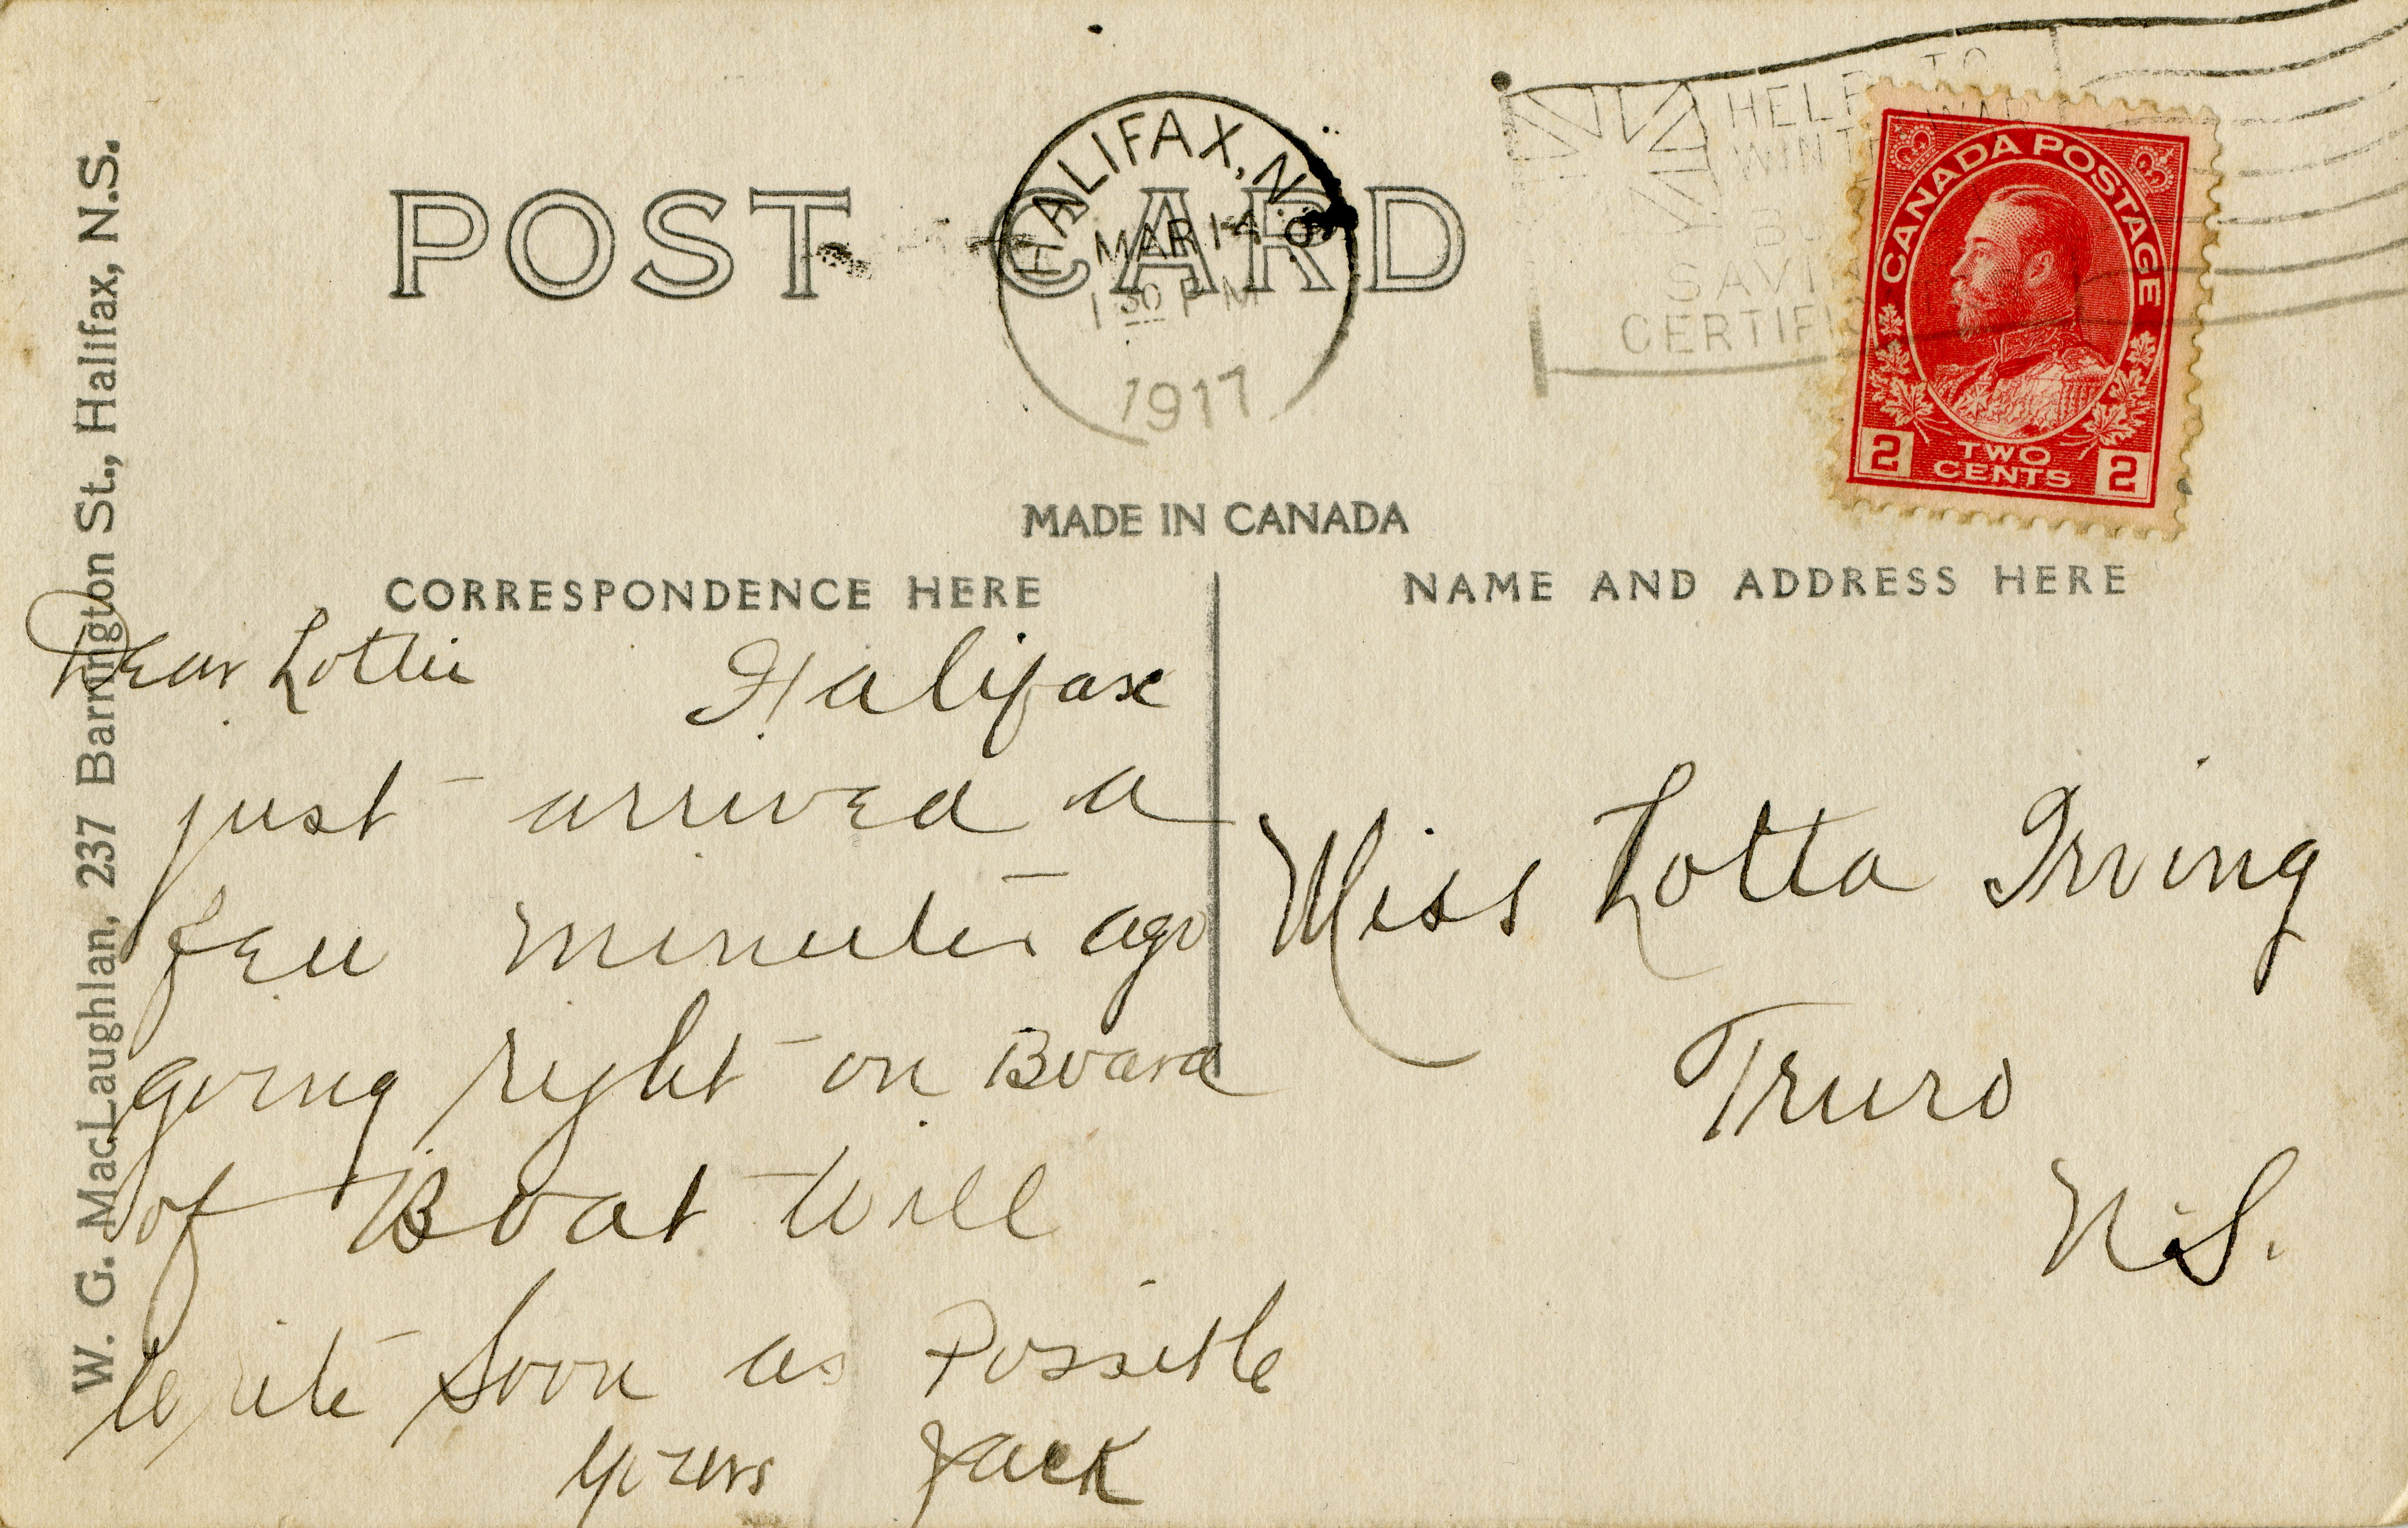 W. G. MacLaughlan, 237 Barrington St., Halifax, N.S.
POST CARD
HALIFAX, N.S.
MAR 14
1 30 PM
1917
HELP TO
WIN THE WAR
BUY
SAVI
CERTIFIC
CANADA POSTAGE
2 TWO CENTS 2
MADE IN CANADA
CORRESPONDENCE HERE
NAME AND ADDRESS HERE
Dear Lottie Halifax
just arrived a
few minutes ago
going right on Board
of Boat will
write soon as Possible
yours Jack
Miss Lotta Irving
Truro
N.S.